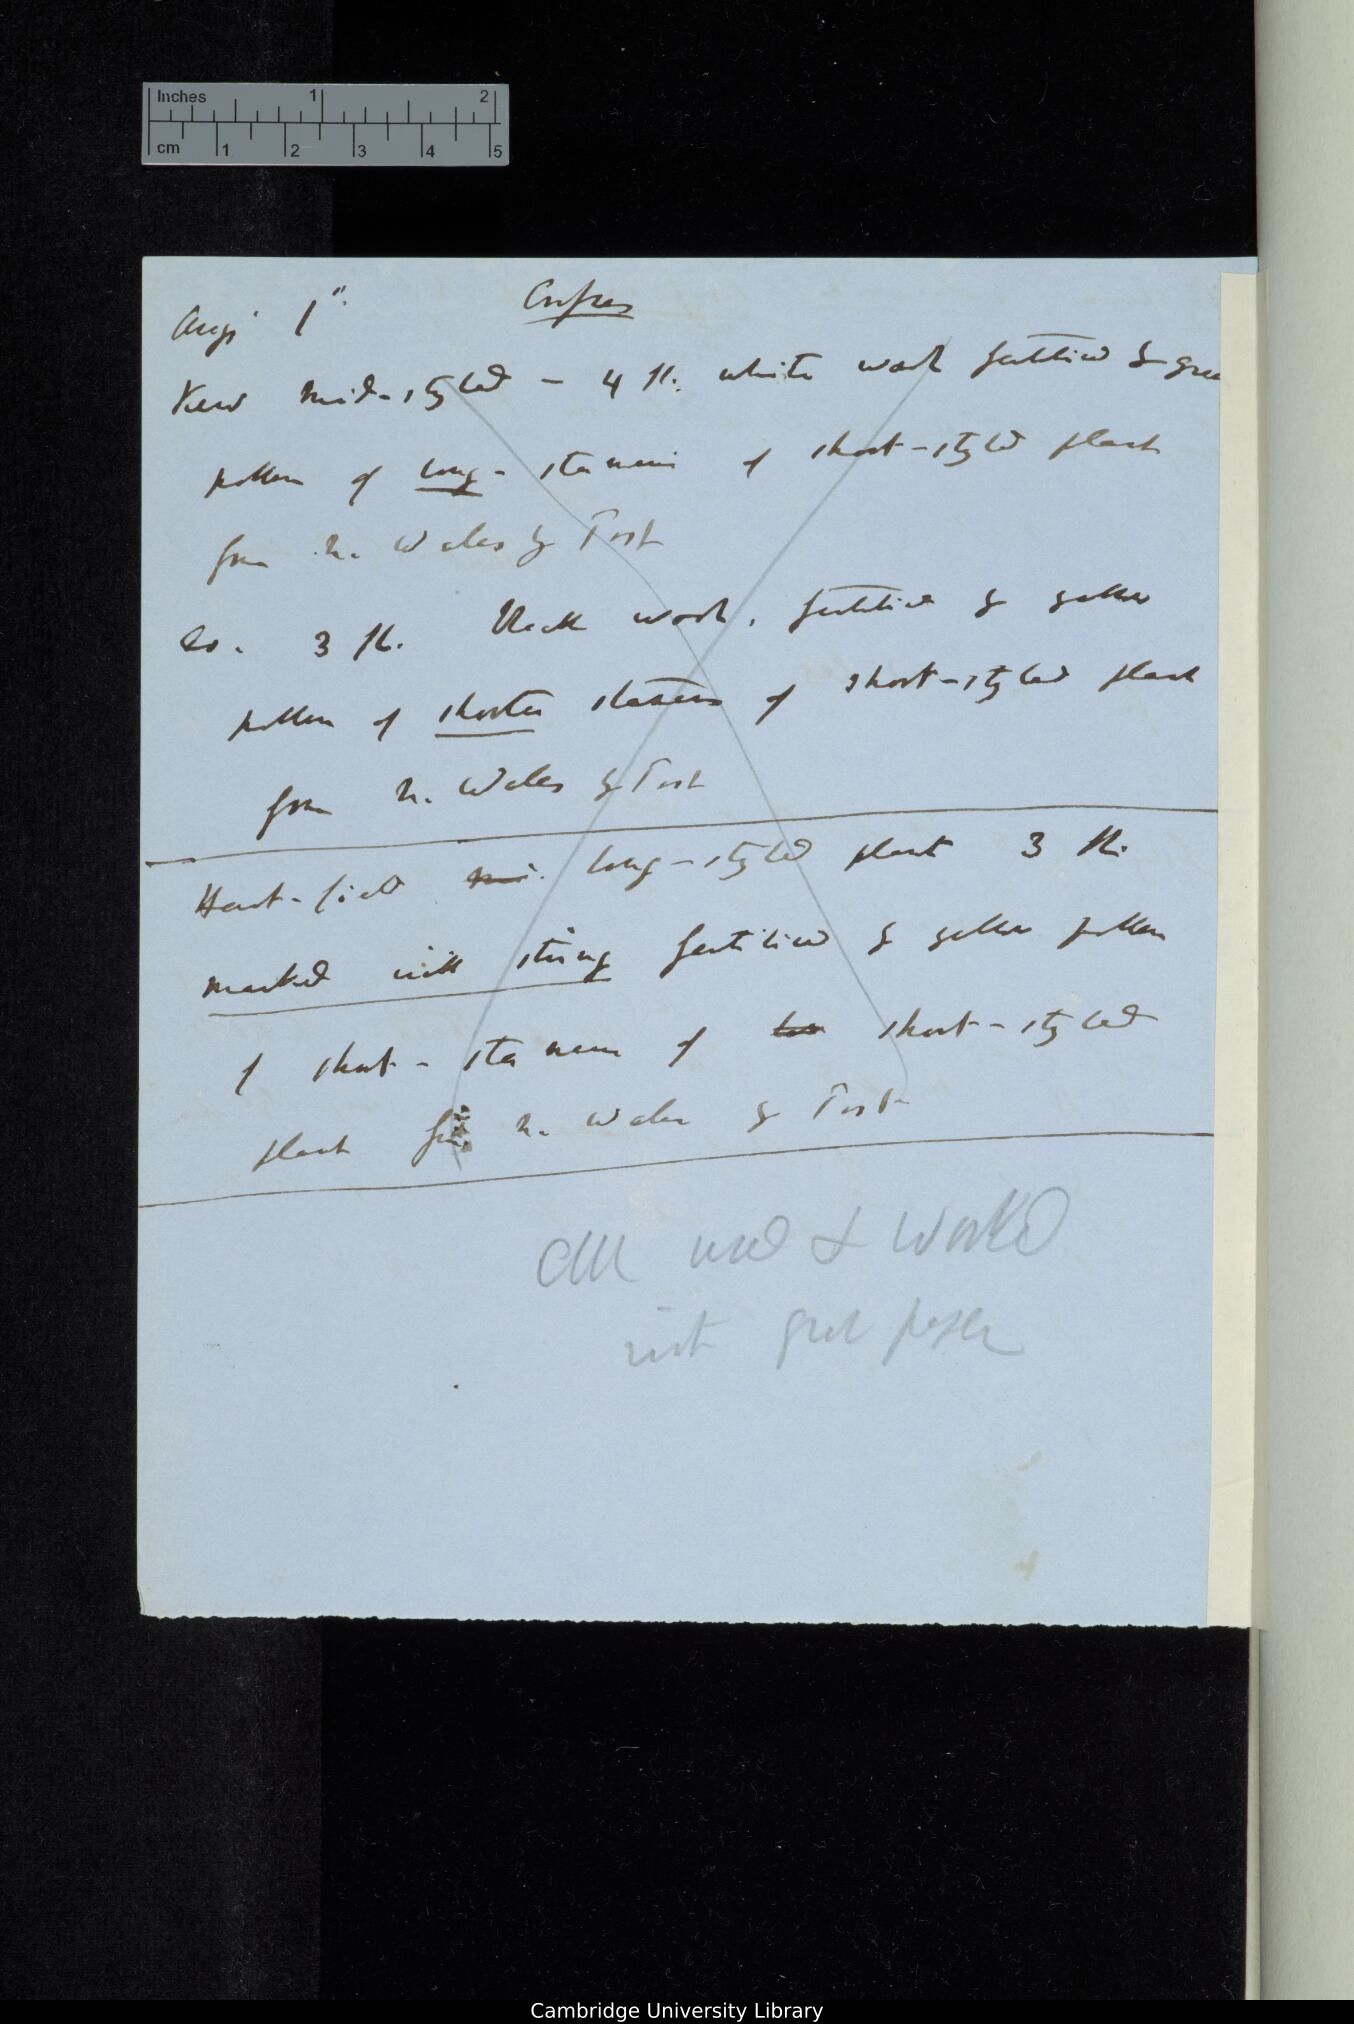 Inches 1 2
cm 1 2 3 4 5
Augt 1st.
Kew mid-styled — 4 fl. white wool fertilised by gree
pollen of long-stamens of short-styled plant
from N. Wales by Post
do. 3 fl. Black wool, fertilised by yellow
pollen of shorter stamens of short-styled plant
from N. Wales by Post
Hart-field long-styled plant 3 fl.
marked with string fertilised by yellow pollen
of short-stamens of short-styled
plant from N. Wales by Post
All used & worked
into great paper
Cambridge University Library